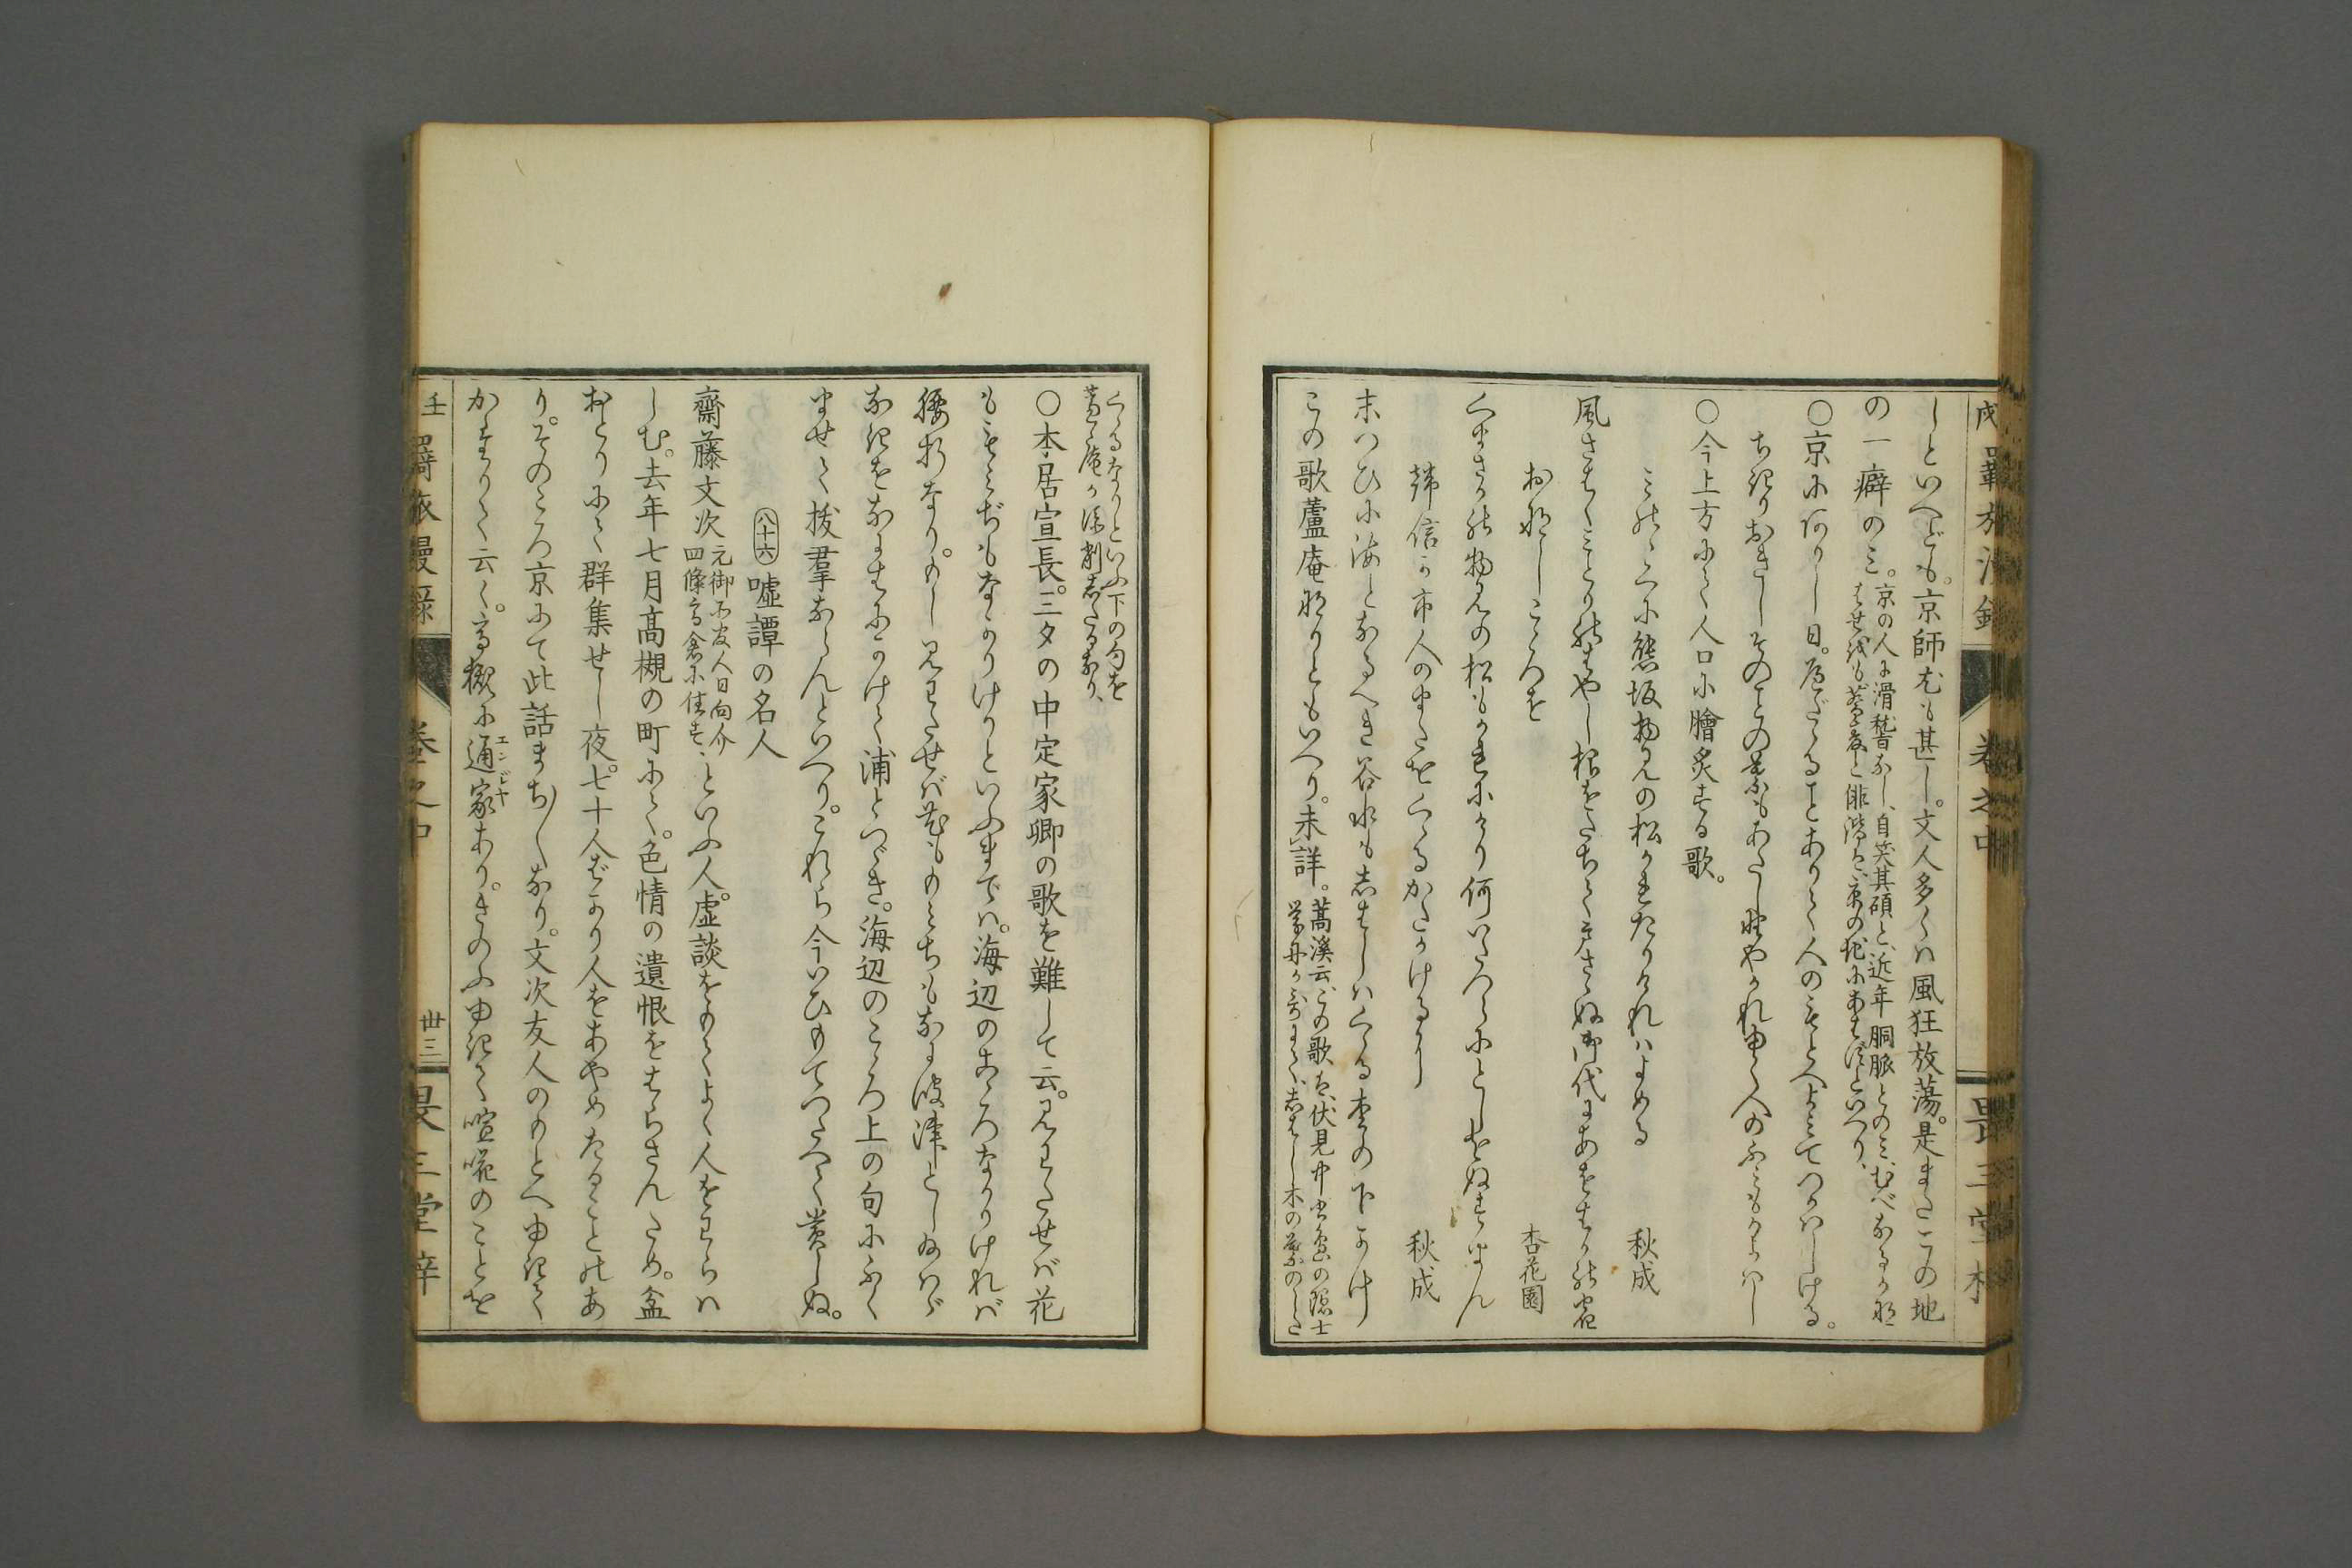 しといへども。京師尤も甚し。文人多くは風狂放蕩。是またこの地
の一癖のミ。
京の人に滑稽なし、自笑其磧と、近年銅脈とのミ、むべなるかな
はせ
俳諧
京の
にあはずといへり、
〇京にありし日。
ることありて人のもとへよミてつかハしける。
ちぎりおきしそのことの葉もあたし野やかれゆく人のふミもかよハし
〇今上方にて人口に膾炙する歌。
熊坂物見の松かれたりければよめる
秋成
風さむくミとりの
はやし根をたちてうこきなき御代にあをはかの宿
おなしこゝろを
杏花園
くまさかの物見の松もかれにけり何いたつらにとしをぬすまん
韓信の市人のまたをくゝるかたかけるに
秋成
末つひに海となるへき谷水もしはし木の葉の下くゝるなり
この歌蘆庵なりともいへり。未詳。
蒿溪云、この歌は、伏見
の隠士
しはし木の葉のした
くゝるなりといふ下の句を
蘆庵の添削したるなり、
〇本居宣長。三夕の中定家卿の歌を難して云。見わたせば花
ももミぢもなかりけりといふまでハ。海辺のこゝろなかりければ
腰折なり。もし見わたせば花ももミちもなには津としあハゞ
なぎをなきにかけて浦とつゞき。海辺のこゝろ上の句にふく
ませて抜羣ならんといへり。これら今いひもてつたへて賞しぬ。
八十六 嘘譚の名人
齋藤文次
元御所
人日向介
四條高倉に住す、
といふ人。虚談をもてよく人をわらハ
しむ。去年七月高槻の町にて。色情の遺恨をはらさんため。盆
おとりにて群集せし夜。七十人ばかり人をあやめたることのあ
り。そのころ京にて此話まち／＼なり。文次友人のもとへゆきて
かたりて云く。高槻に通家あり。きのふゆきて喧嘩のことを
エンジヤ
壬戌羇旅漫録
巻之中
卅三
畏三堂梓